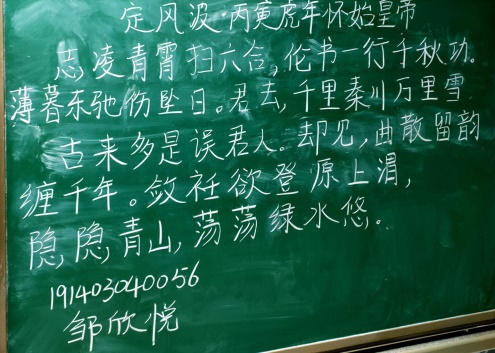 定风波·丙寅虎年怀始皇帝
志凌青霄扫六合，伦书一行千秋功。
薄暮东驰伤坠日。君去，千里秦川万里雪
古来多是误君人。却见，曲散留韵
缠千年。敛衽欲登源上湄，
隐隐青山，荡荡绿水悠。
191403040056
邹欣悦